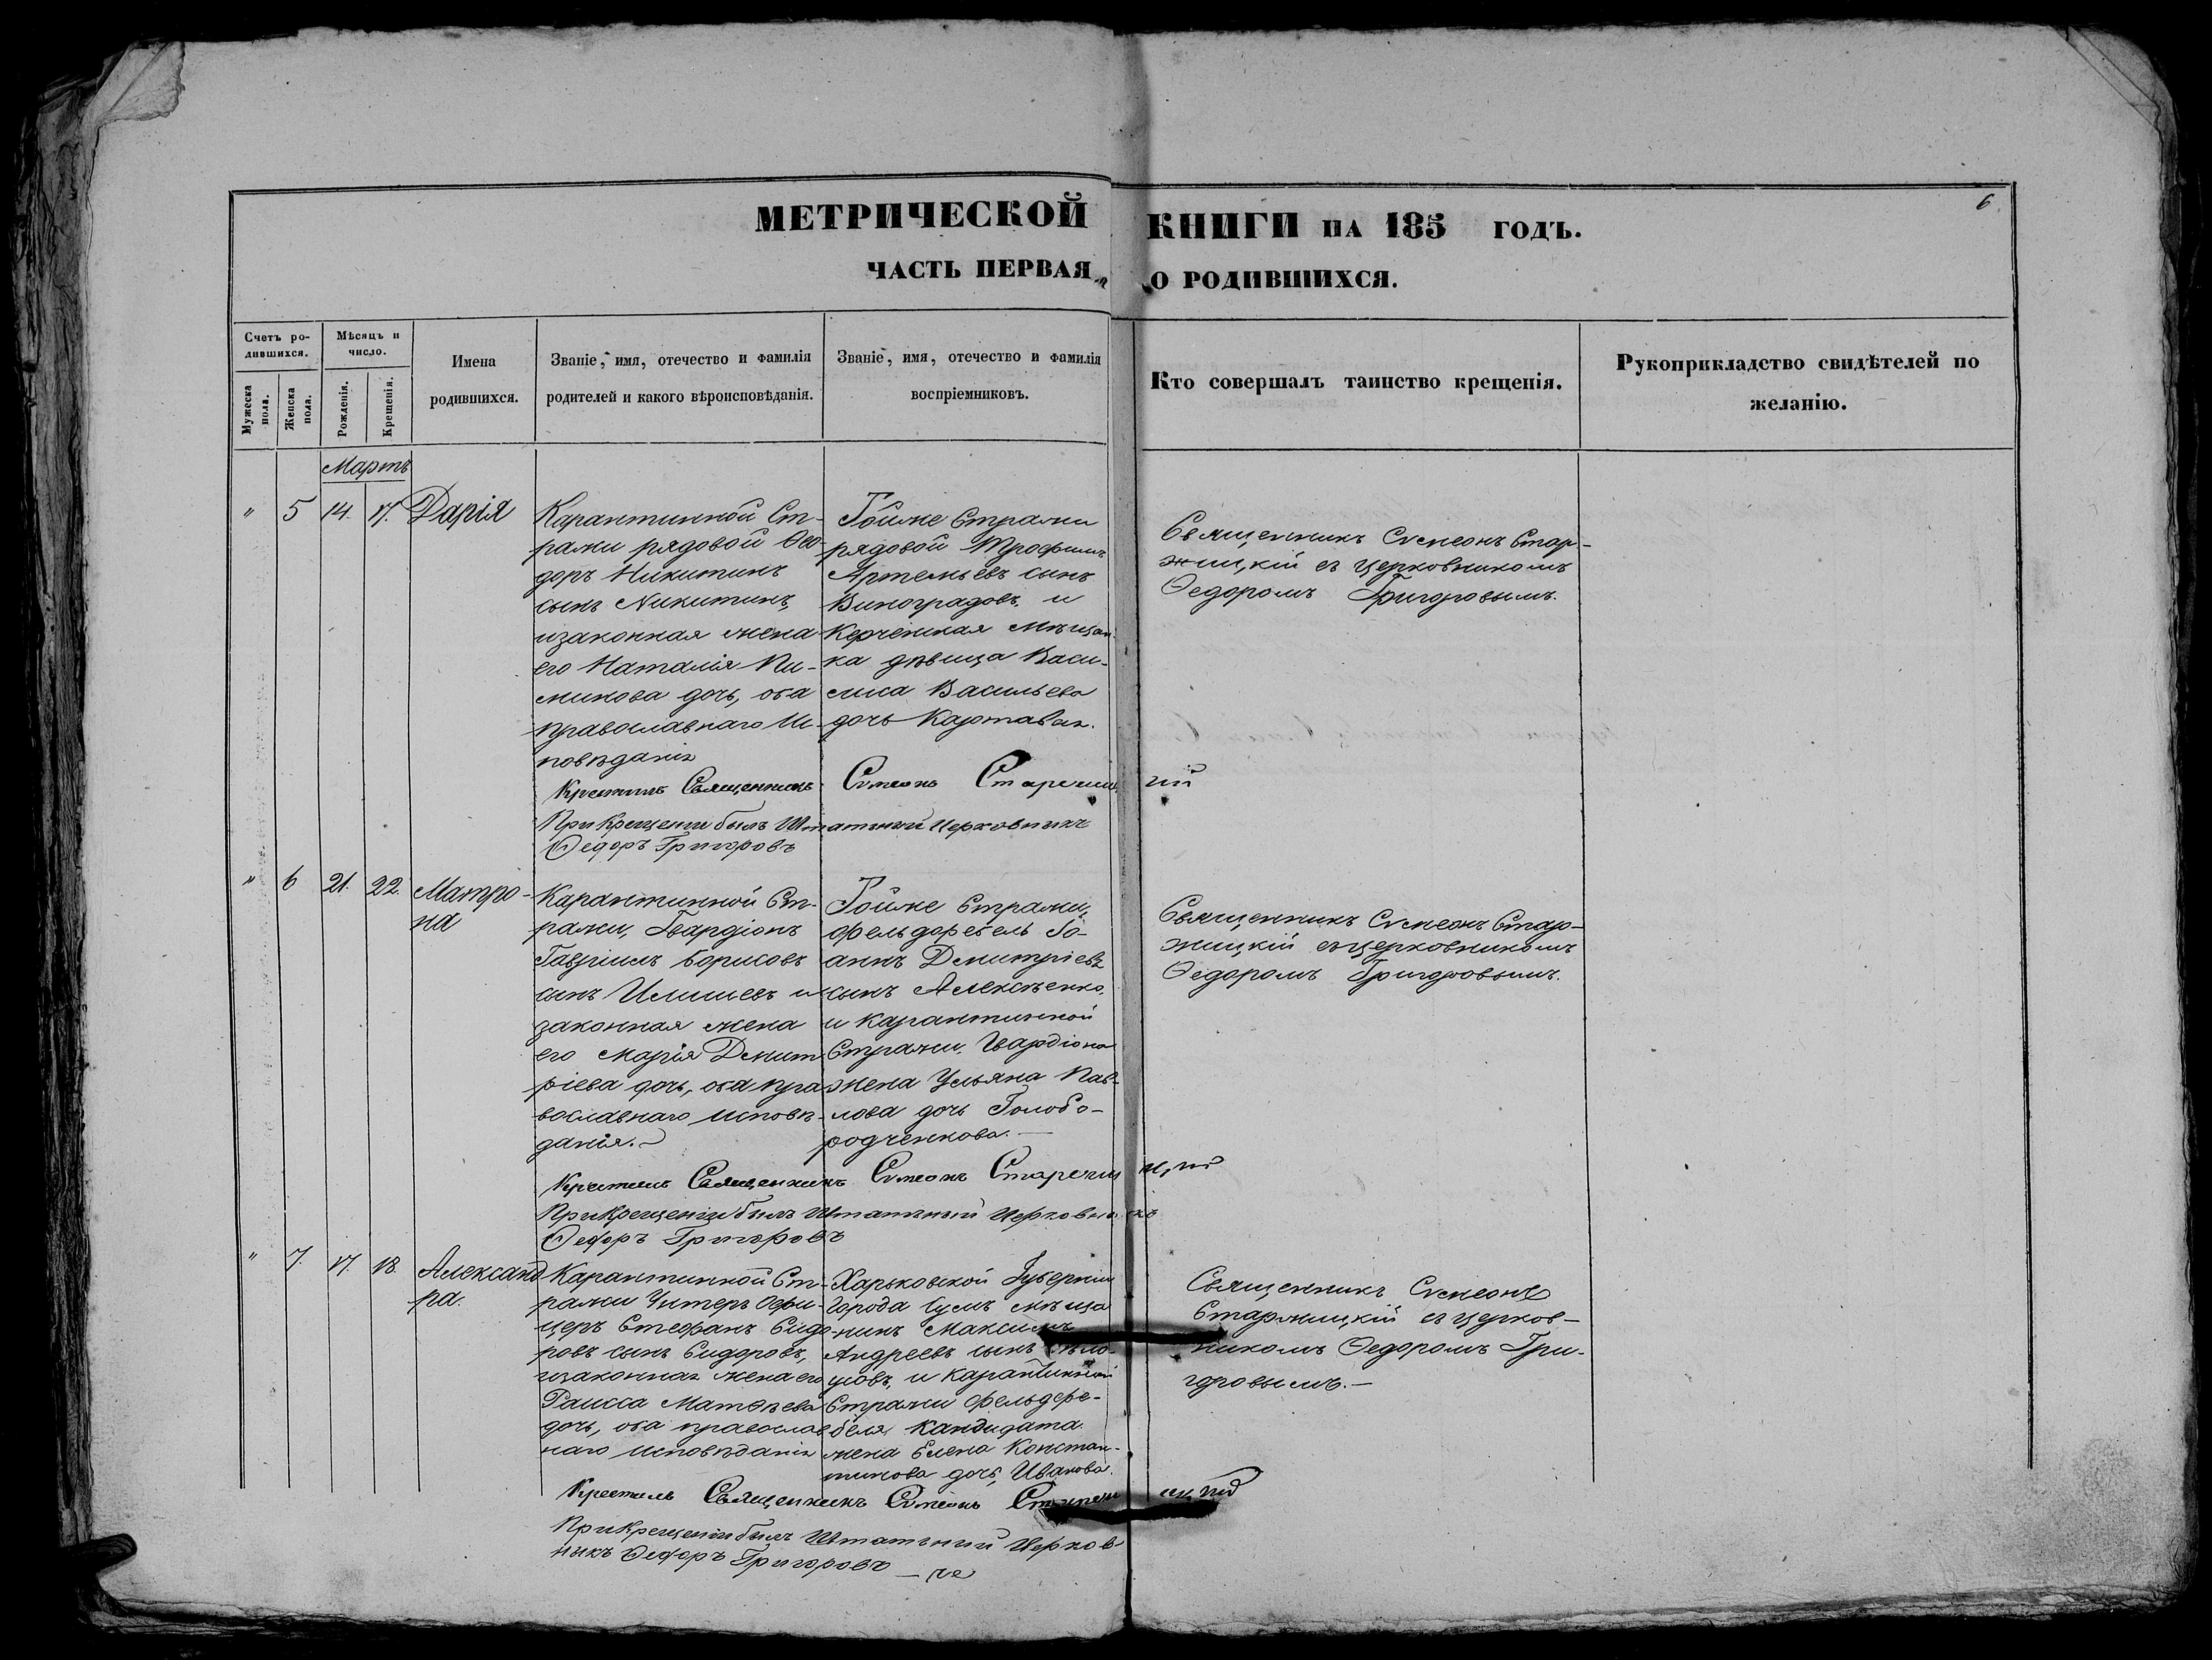 6
МЕТРИЧЕСКОЙ КНИГИ НА 185 ГОДЪ.
ЧАСТЬ ПЕРВАЯ, О РОДИВШИХСЯ.
Счетъ ро-
дившихся.
Мужеска пола.
Женска пола.
Мѣсяцъ и
число.
Рожденія.
Крещенія.
Имена
родившихся.
Званіе, имя, отечество и фамилія
родителей и какого вѣроисповѣданія.
Званіе, имя, отечество и фамилія
воспріемниковъ.
Кто совершалъ таинство крещенія.
Рукоприкладство свидѣтелей по
желанію.
Мартъ
" 5 14. 17. Дарія
Карантинной Ст-
ражи рядовой Ѳео-
доръ Никитинъ
сынъ Никитинъ,
изаконная жена
его Наталія Пи-
минова дочь, оба
православнаго Ис-
повѣданія
Тойже Стражи
рядовой Трофимъ
Артемьевъ сынъ
Виноградовъ, и
Керченская Мѣщан-
ка дѣвица Васи-
лиса Васильева
дочь Картавая.
Священникъ Сѵмеонъ Стар-
жицкій съ церковникомъ
Ѳедоромъ Григоровымъ.
Крестилъ Священникъ Сѵмеонъ
При Крещеніи былъ Штатный Церковникъ
Ѳедоръ Григоровъ
" 6 21. 22. Матро-
на
Карантинной Ст-
ражи, Гвардіонъ
Гавріилъ Борисовъ
сынъ и
законная жена
его Марія Дмит-
ріева дочь, оба пра-
вославнаго Исповѣ-
данія.
Тойже Стражи,
фельдфебель Іо-
аннъ Дмитріевъ
сынъ Алексѣенко,
и Карантинной
Стражи, Гвардіона
жена Ульяна Пав-
лова дочь Голобо-
родченкова.
Священникъ Сѵмеонъ Стар-
жицкій съ церковникомъ
Ѳедоромъ Григоровымъ.
Крестилъ Священникъ Сѵмеонъ
При Крещеніи былъ Штатный Церковникъ
Ѳедоръ Григоровъ
" 7. 17. 18. Александ
ра.
Карантинной Ст-
ражи Унтеръ Офи-
церъ Стефанъ Сидо-
ровъ сынъ Сидоровъ,
изаконная жена его
Раисса Матѳѣева
дочь, оба православ
наго Исповѣданія
Харьковской Губерніи
Города Сумъ мѣща
нинъ Максимъ
Андреевъ сынъ
и Карантинной
Стражи Фельдфе-
беля Кандидата
жена Елена Констан-
тинова дочь Иванова.
Священникъ Сѵмеонъ
Старжицкій съ церков-
никомъ Ѳедоромъ Гри-
горовымъ.
Крестилъ Священникъ Сѵмеонъ
При Крещеніи былъ Штатный Церков-
никъ Ѳедоръ Григоровъ